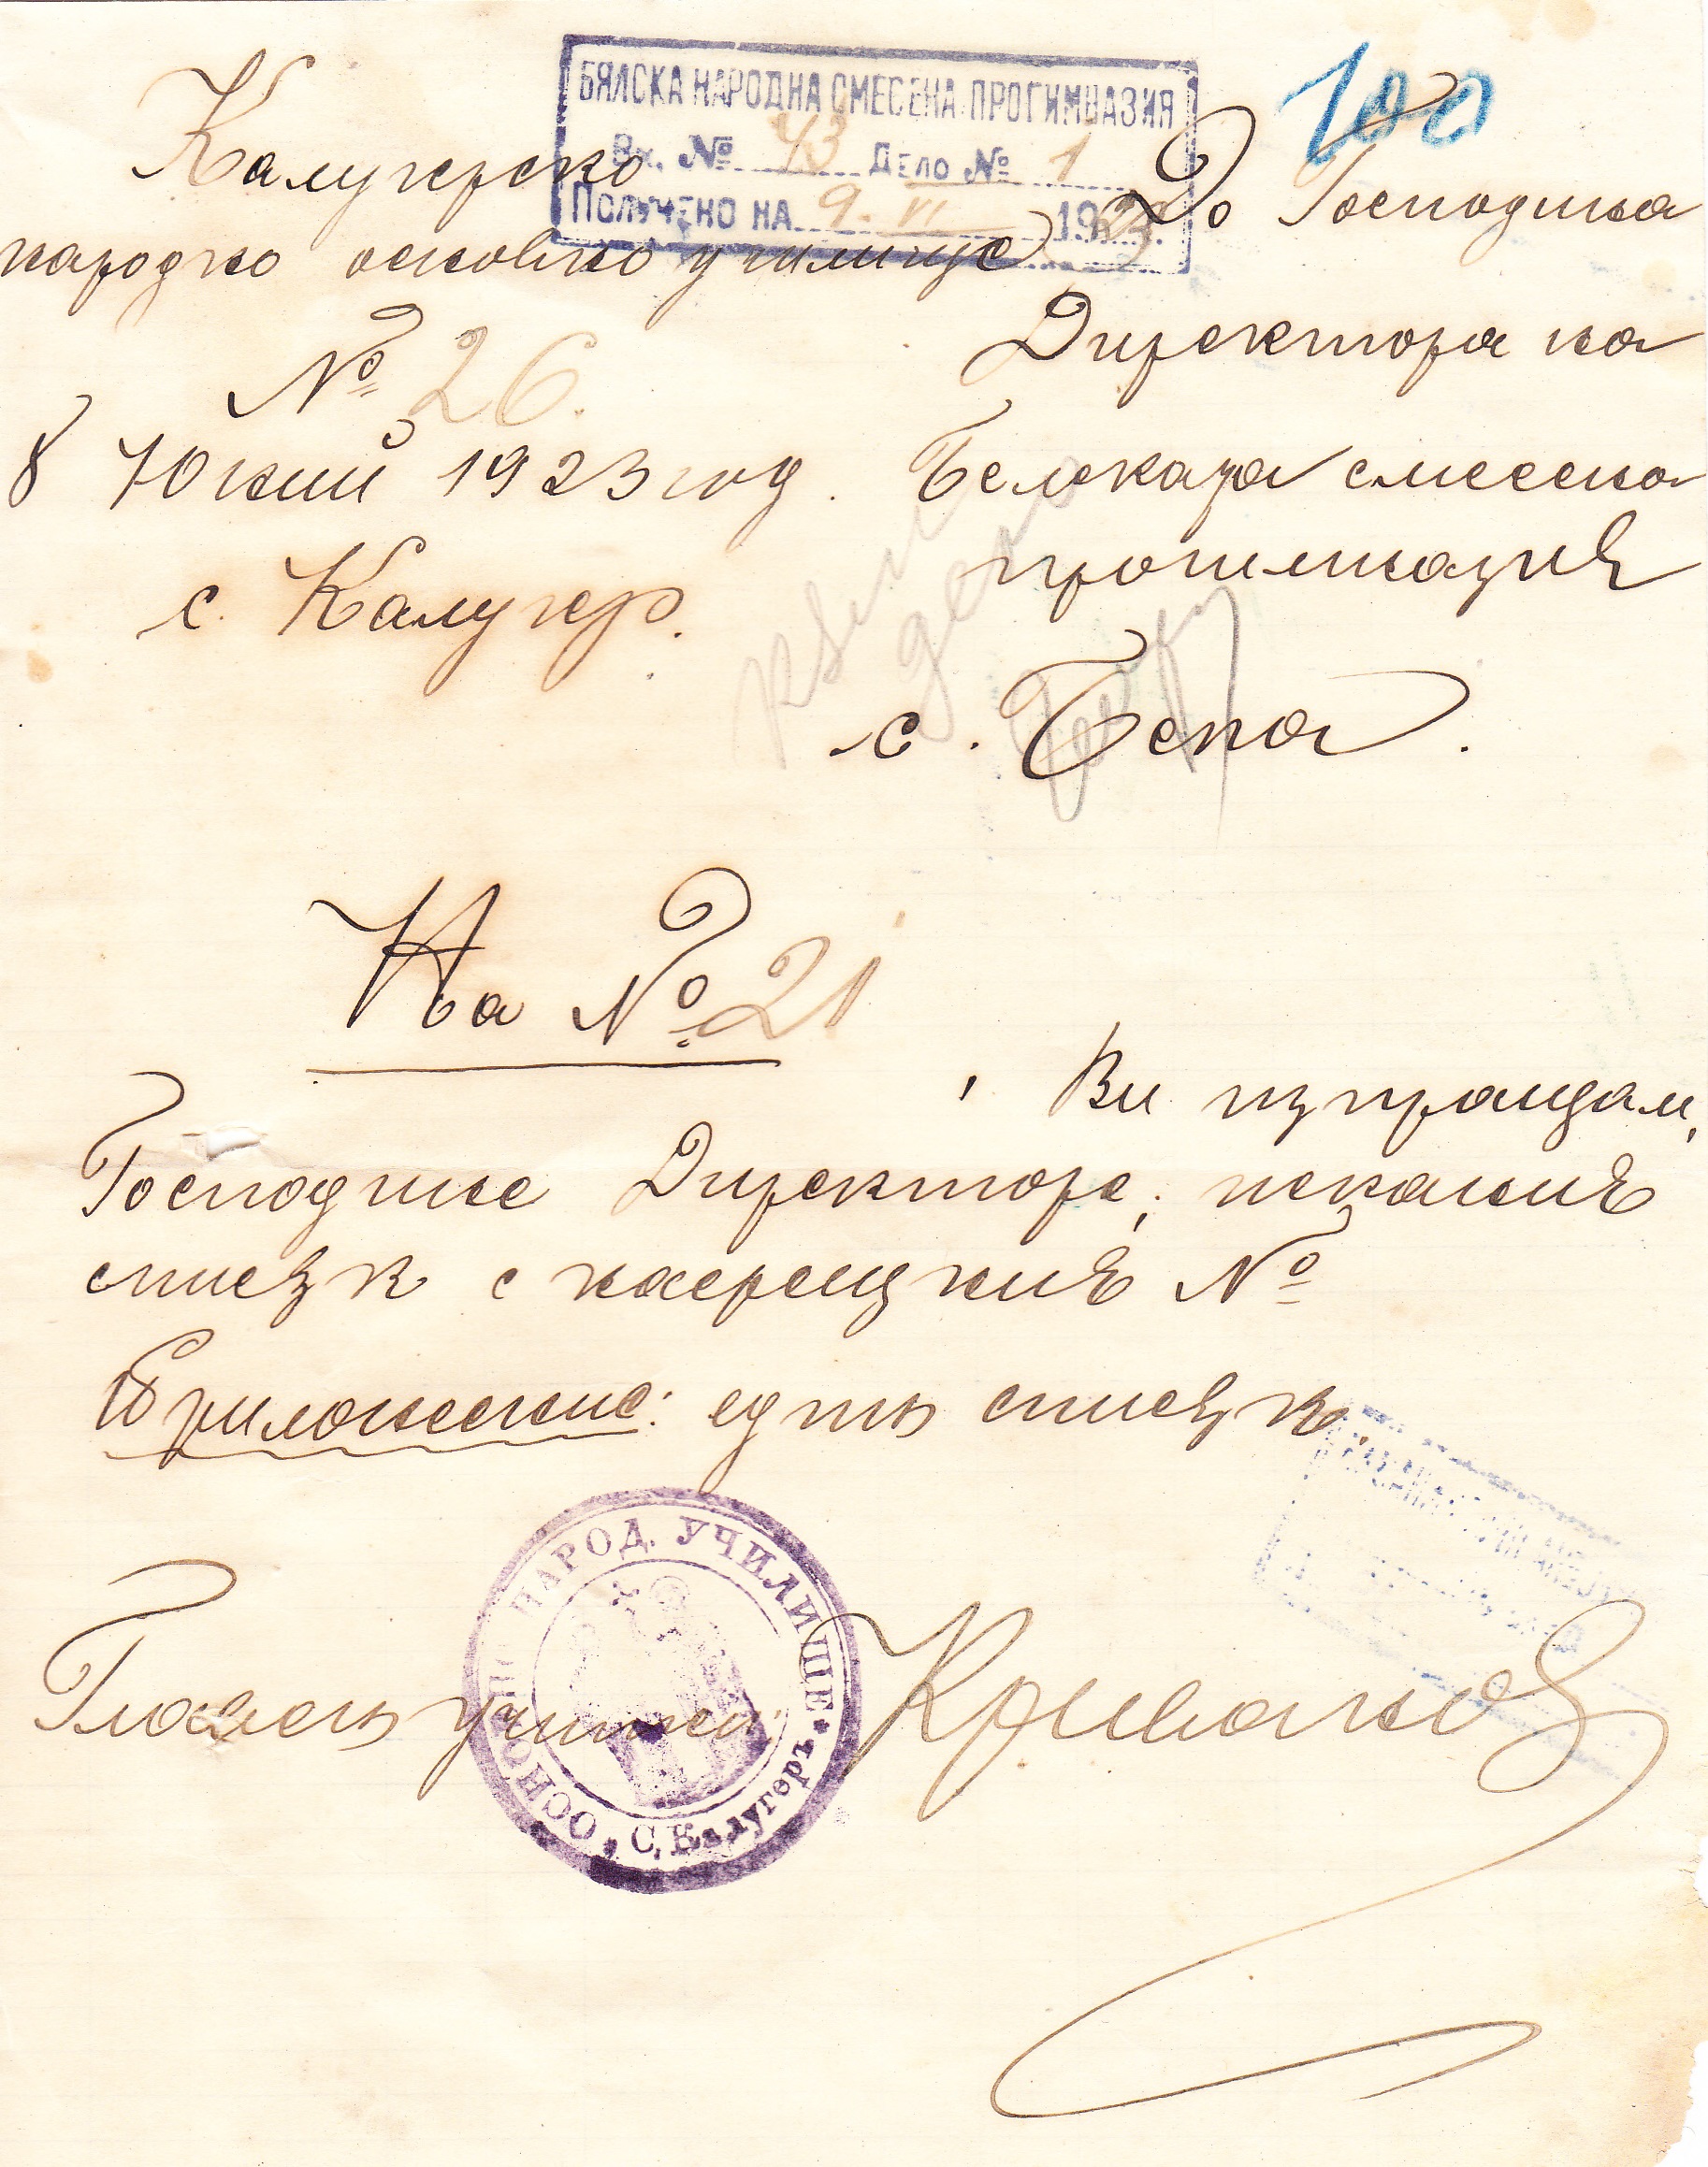 БЯЛСКА НАРОДНА СМЕСЕНА ПРОГИМНАЗИЯ
Вх. № 43 Дело № 1
Получено на 9. VI 1923.
100
Калугерско
народно основно училище
№ 26.
8 Юний 1923 год.
с. Калугер.
До Господина
Директора на
Белската смесена
прогимназия
с. Бела.
към
дело
На № 21
Ви изпращам,
Господине Директоре, искания
списък с насрещния №
Приложение: един списък.
Главен учител: Криванов
ОСНОВНО НАРОД. УЧИЛИЩЕ * С. Калугеръ *